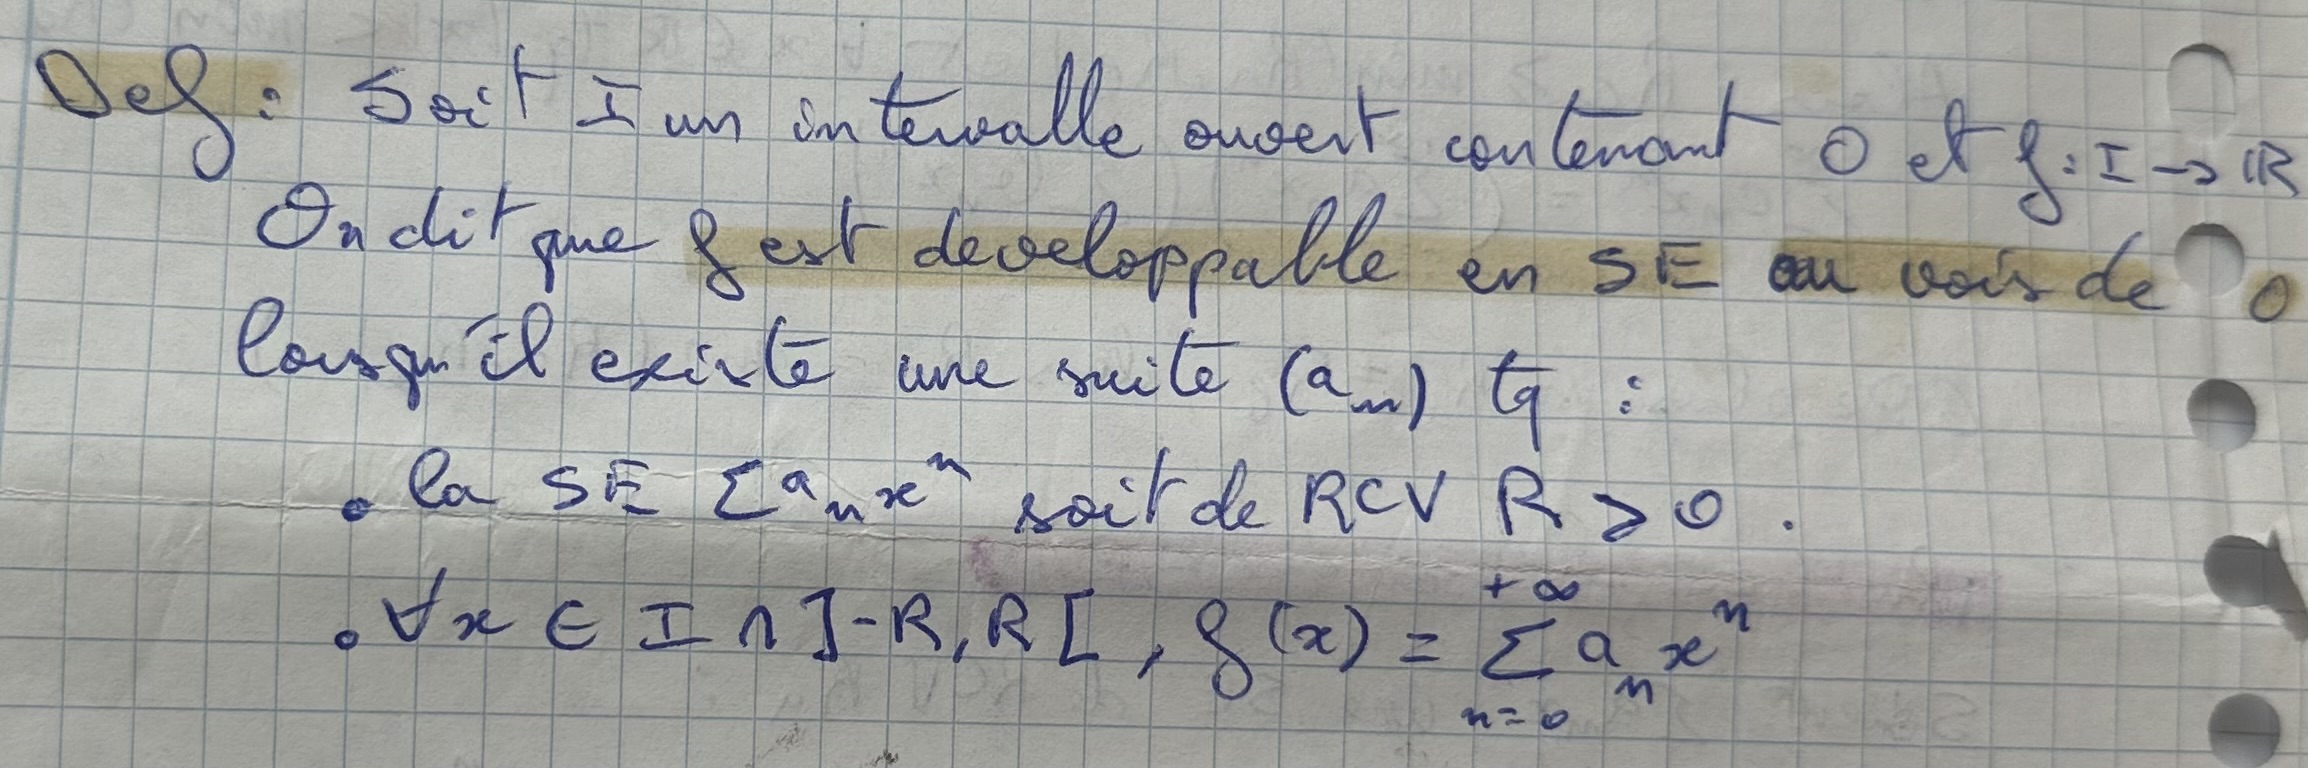 Def : Soit I un intervalle ouvert contenant 0 et f : I → ℝ
On dit que f est developpable en SE au vois de 0
lorsqu'il existe une suite (aₙ) tq :
• la SE Σ aₙxⁿ soit de RCV R > 0 .
• ∀x ∈ I ∩ ]-R, R[ , f(x) = Σ_{n=0}^{+∞} aₙ xⁿ